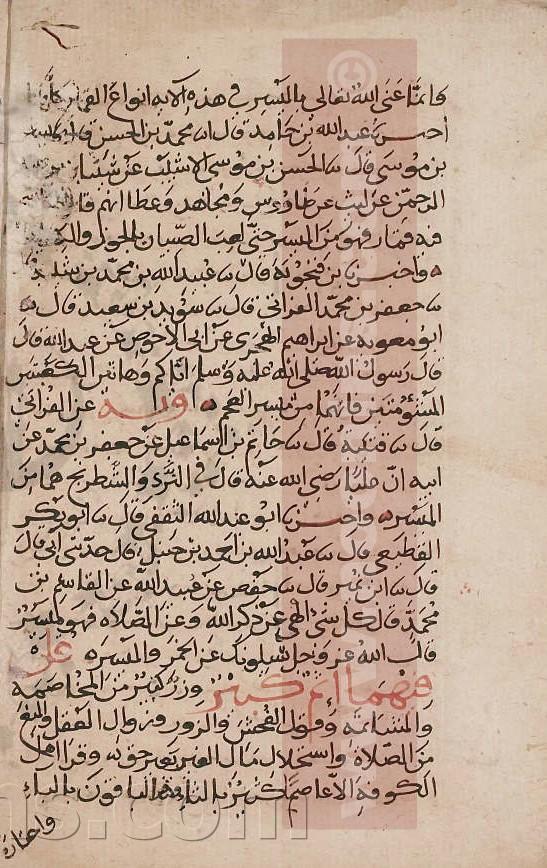 فانما عنى الله تعالى بالميسر في هذه الآية انواع القمار كلها
احسرنا عبد الله بن حامد قال ابنا محمد بن الحسن قال
بن موسى قال ثنا الحسن بن موسى الاشيب عن شيبان
الرحمن عن ليث عن طاووس ومجاهد وعطا انهم قالوا كل شي
فيه قمار فهو من الميسر حتى لعب الصبيان بالجوز والكعاب
ه واحسرنا بن فنجويه قال ثنا عبيد الله بن محمد بن شنبه
ثنا جعفر بن محمد الفرياني قال ثنا سويد بن سعيد قال ثنا
ابو معوية عن ابراهيم الهجري عن ابي الاحوص عن عبد الله قال
قال رسول الله صلى الله عليه وسلم اياكم وهاتين الكعبتين
المشؤمتين فانهما من ميسر العجم ه وبه عن الفرياني
قال ثنا قتيبة قال ثنا حاتم بن اسماعيل عن جعفر بن محمد عن
ابيه ان عليا رضي الله عنه قال في النرد والشطرنج هما من
الميسر ه واحسرنا ابو عبد الله الثقفي قال ثنا ابو بكر
القطيعي قال ثنا عبد الله بن احمد بن حنبل قال حدثني ابي قال
قال ثنا ابن نمير قال ثنا حفص عن عبيد الله عن القاسم بن
محمد قال كل شئ الهى عن ذكر الله وعن الصلاة فهو ميسر
قال الله عز وجل يسلونك عن الخمر والميسر ه قل
فيهما اثم كبير وزر كبير من المخاصمة
والمشاتمة وقول الفحش والزور وزوال العقل والمنع
من الصلاة واستحلال مال الغير بغير حق ه وقرا اهل
الكوفة الا عاصما كثير بالثاء الباقون بالباء
واختاره
ms.com